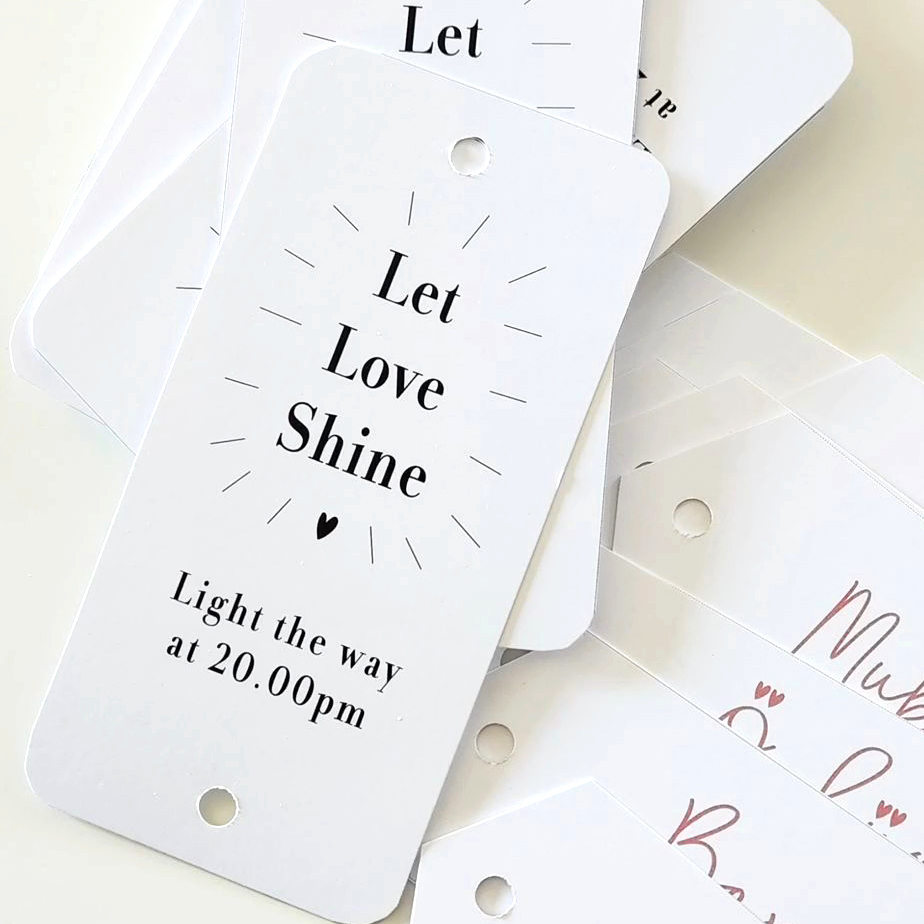 Let
at
Let
Love
Shine
Light the way
at 20.00pm